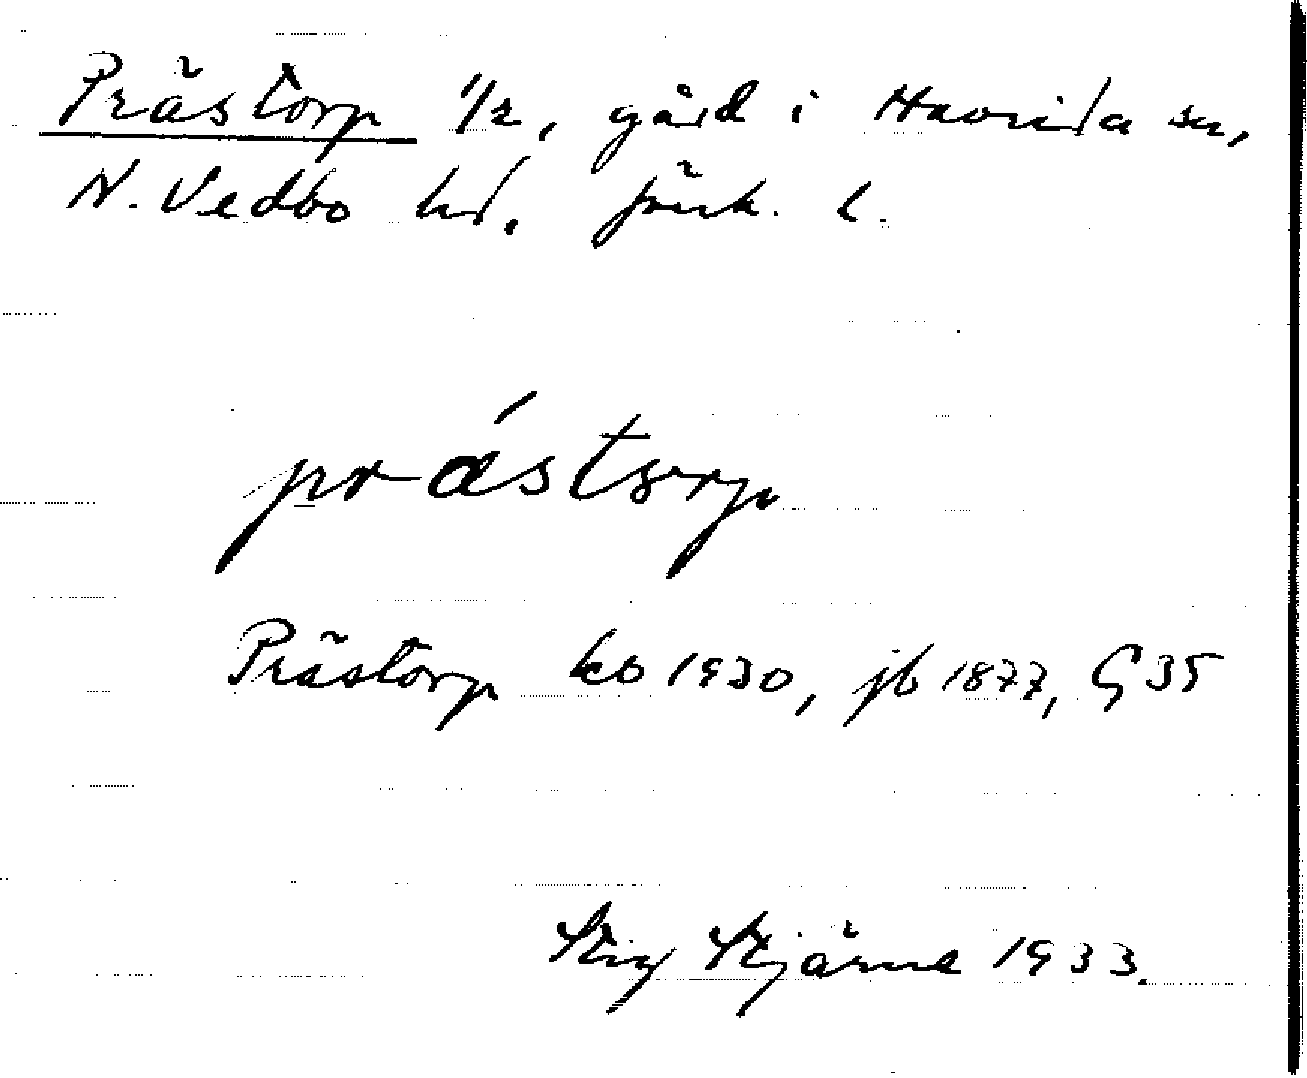 Prästorp 1/2, gård i Haurida sn,
N. Vedbo hd. Jönk. l.
prástorp
Prästorp kb 1930, jb 1877, G 35
Stig Stjärne 1933.